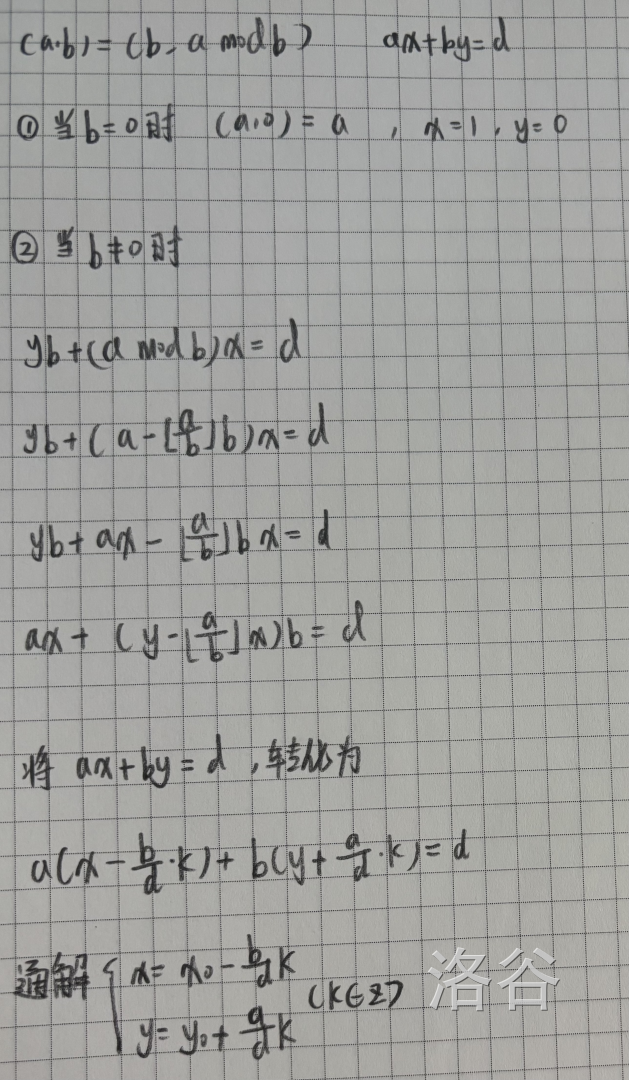 (a·b)=(b, a mod b) ax+by=d
① 当b=0时 (a,0)=a , x=1, y=0
② 当b≠0时
yb+(a mod b)x=d
yb+(a-⌊a/b⌋b)x=d
yb+ax-⌊a/b⌋bx=d
ax+(y-⌊a/b⌋x)b=d
将 ax+by=d ,转化为
a(x-b/d·k)+b(y+a/d·k)=d
通解 { x=x₀-b/d k
y=y₀+a/d k
(k∈Z)
洛谷